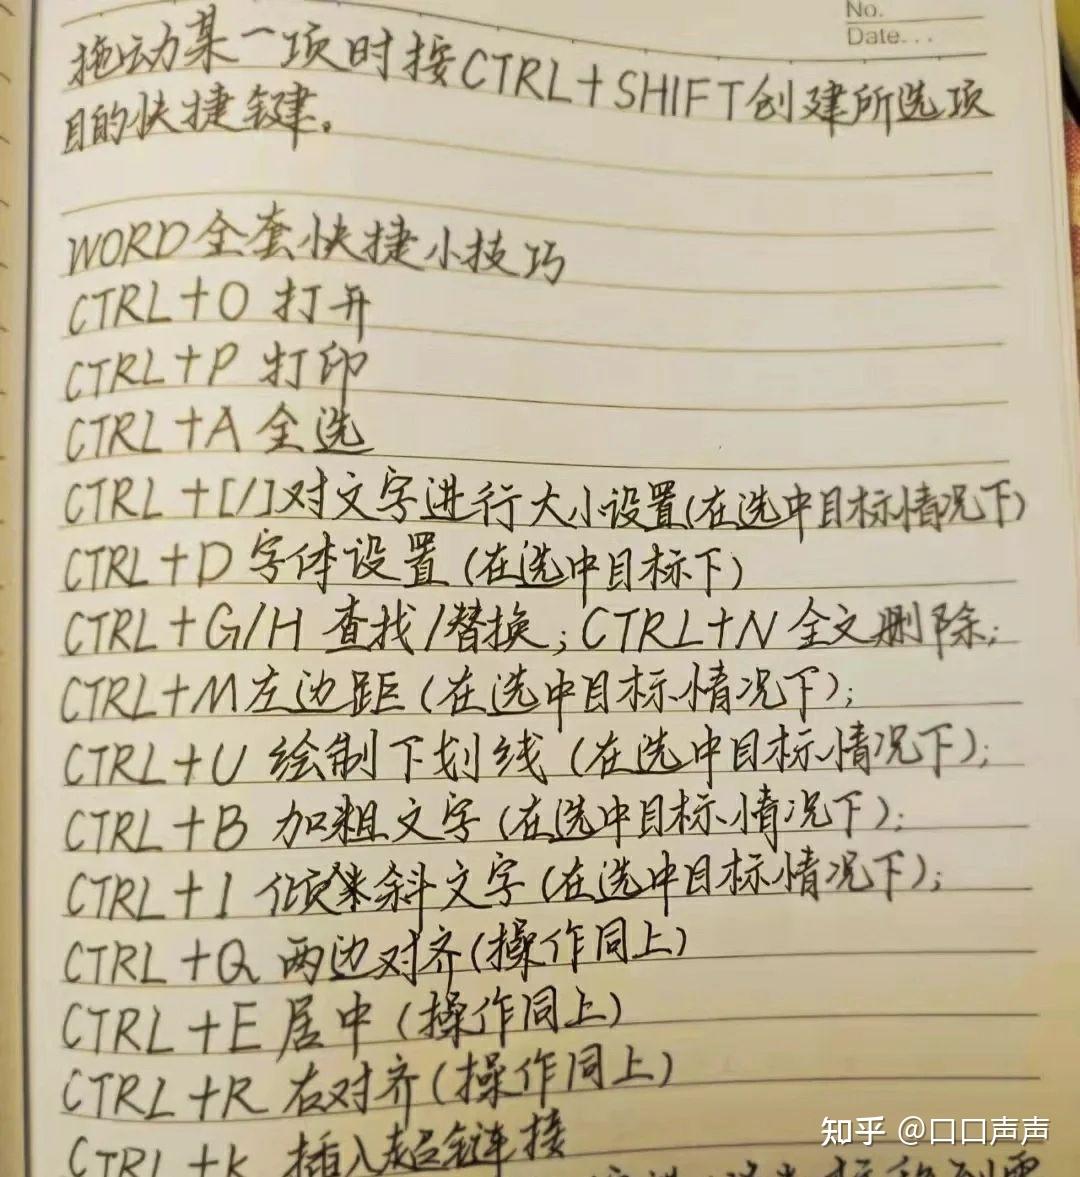 No.
Date...
拖动某一项时按CTRL+SHIFT创建所选项
目的快捷键。
WORD全套快捷小技巧
CTRL+O 打开
CTRL+P 打印
CTRL+A 全选
CTRL+[/]对文字进行大小设置(在选中目标情况下)
CTRL+D 字体设置(在选中目标下)
CTRL+G/H 查找/替换;CTRL+N 全文删除;
CTRL+M左边距(在选中目标情况下);
CTRL+U 绘制下划线(在选中目标情况下);
CTRL+B 加粗文字(在选中目标情况下);
CTRL+I 倾斜文字(在选中目标情况下);
CTRL+Q 两边对齐(操作同上)
CTRL+E 居中(操作同上)
CTRL+R 右对齐(操作同上)
CTRL+K 插入超链接
知乎 @口口声声